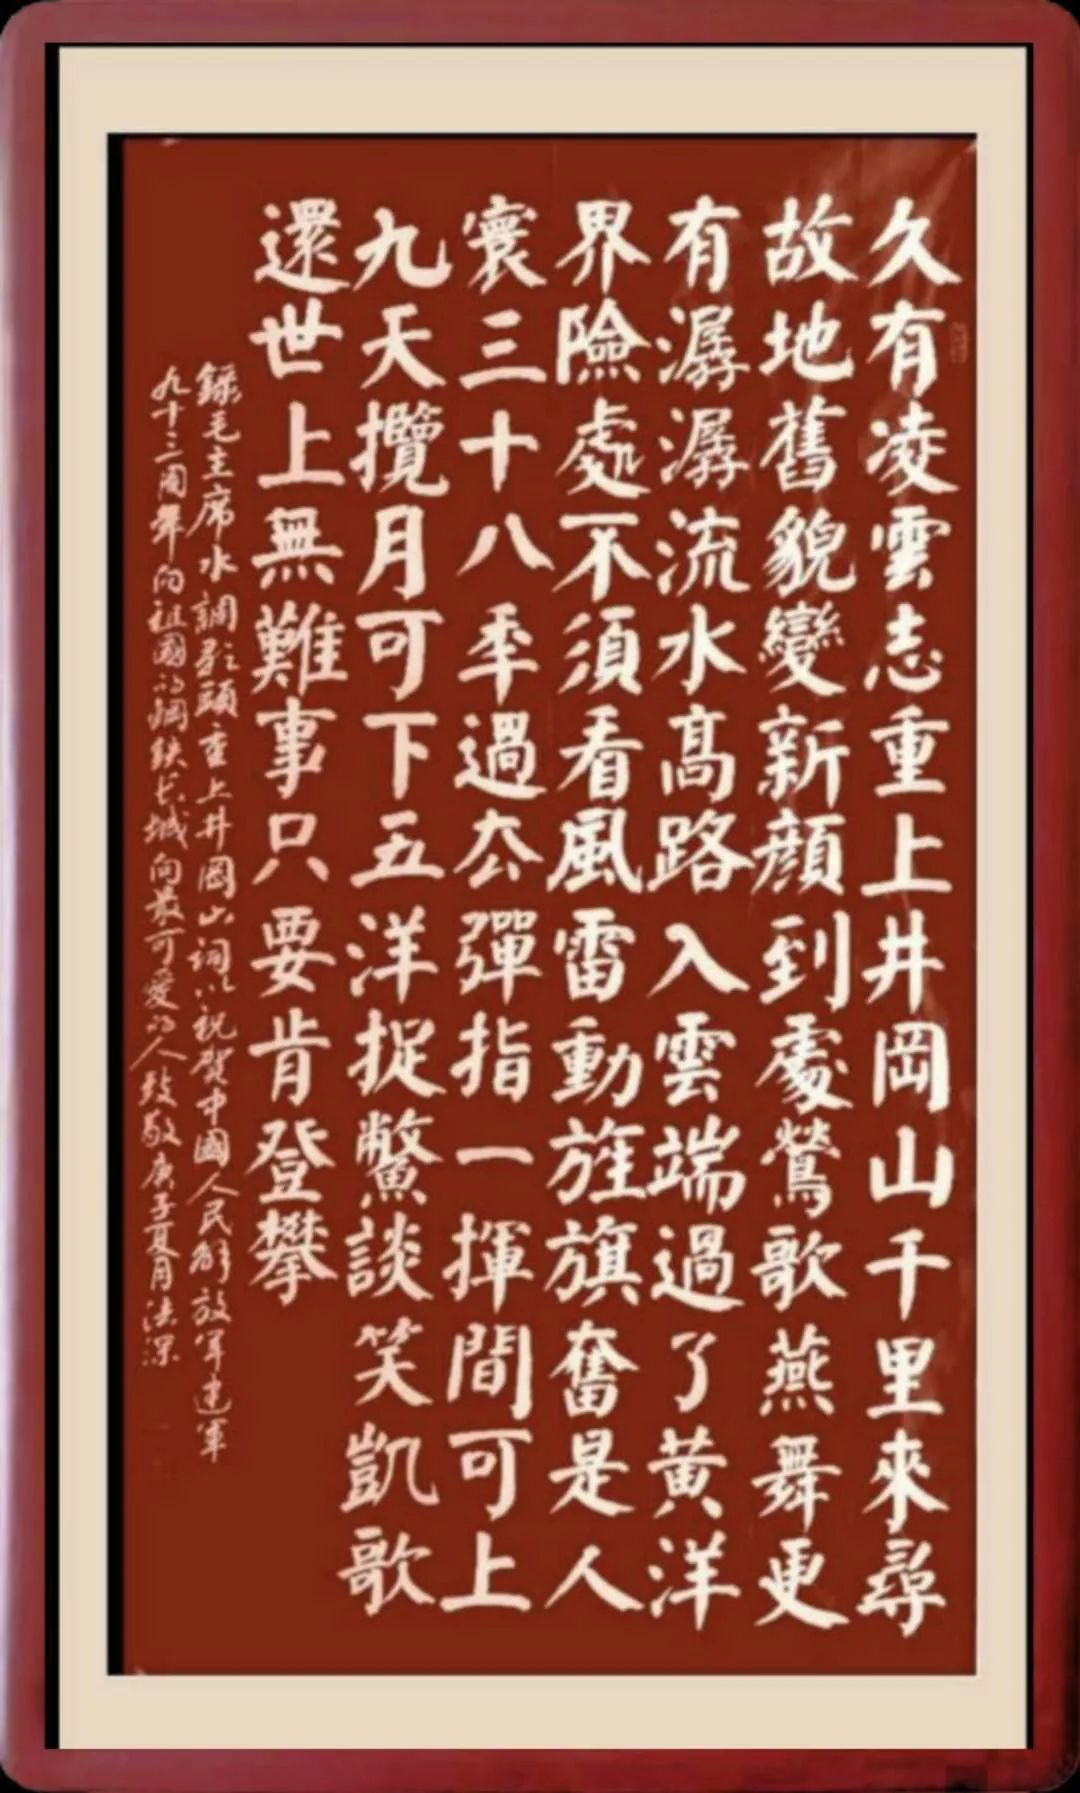 久有凌雲志重上井岡山千里來尋
故地舊貌變新顔到處鶯歌燕舞更
有潺潺流水高路入雲端過了黄洋
界險處不須看風雷動旌旗奮是人
寰三十八年過去彈指一揮間可上
九天攬月可下五洋捉鱉談笑凱歌
還世上無難事只要肯登攀
錄毛主席水調歌頭重上井岡山詞以祝賀中國人民解放軍建軍
九十三周年向祖國的鋼鉄长城向最可愛的人致敬庚子夏月法深